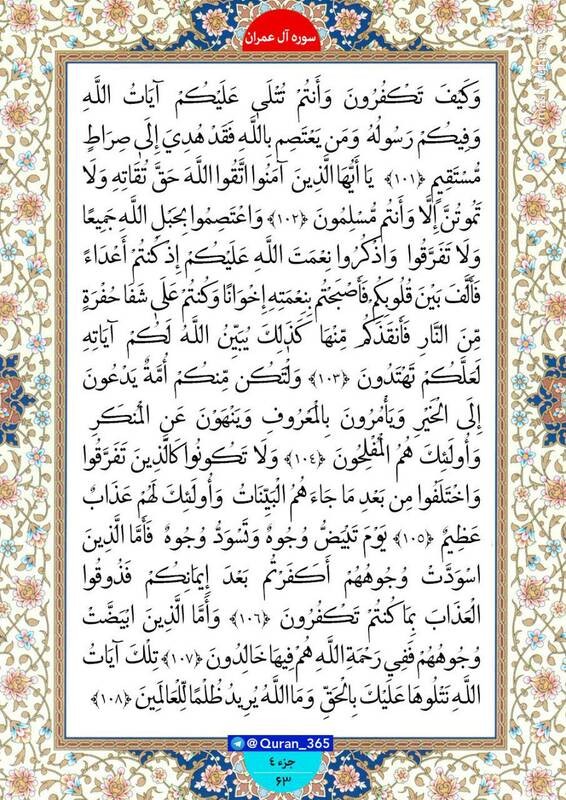 سوره آل عمران
وَكَيْفَ تَكْفُرُونَ وَأَنتُمْ تُتْلَىٰ عَلَيْكُمْ آيَاتُ اللَّهِ
وَفِيكُمْ رَسُولُهُ وَمَن يَعْتَصِم بِاللَّهِ فَقَدْ هُدِيَ إِلَىٰ صِرَاطٍ
مُّسْتَقِيمٍ ﴿١٠١﴾ يَا أَيُّهَا الَّذِينَ آمَنُوا اتَّقُوا اللَّهَ حَقَّ تُقَاتِهِ وَلَا
تَمُوتُنَّ إِلَّا وَأَنتُم مُّسْلِمُونَ ﴿١٠٢﴾ وَاعْتَصِمُوا بِحَبْلِ اللَّهِ جَمِيعًا
وَلَا تَفَرَّقُوا وَاذْكُرُوا نِعْمَتَ اللَّهِ عَلَيْكُمْ إِذْ كُنتُمْ أَعْدَاءً
فَأَلَّفَ بَيْنَ قُلُوبِكُمْ فَأَصْبَحْتُم بِنِعْمَتِهِ إِخْوَانًا وَكُنتُمْ عَلَىٰ شَفَا حُفْرَةٍ
مِّنَ النَّارِ فَأَنقَذَكُم مِّنْهَا كَذَٰلِكَ يُبَيِّنُ اللَّهُ لَكُمْ آيَاتِهِ
لَعَلَّكُمْ تَهْتَدُونَ ﴿١٠٣﴾ وَلْتَكُن مِّنكُمْ أُمَّةٌ يَدْعُونَ
إِلَى الْخَيْرِ وَيَأْمُرُونَ بِالْمَعْرُوفِ وَيَنْهَوْنَ عَنِ الْمُنكَرِ
وَأُولَٰئِكَ هُمُ الْمُفْلِحُونَ ﴿١٠٤﴾ وَلَا تَكُونُوا كَالَّذِينَ تَفَرَّقُوا
وَاخْتَلَفُوا مِن بَعْدِ مَا جَاءَهُمُ الْبَيِّنَاتُ وَأُولَٰئِكَ لَهُمْ عَذَابٌ
عَظِيمٌ ﴿١٠٥﴾ يَوْمَ تَبْيَضُّ وُجُوهٌ وَتَسْوَدُّ وُجُوهٌ فَأَمَّا الَّذِينَ
اسْوَدَّتْ وُجُوهُهُمْ أَكَفَرْتُم بَعْدَ إِيمَانِكُمْ فَذُوقُوا
الْعَذَابَ بِمَا كُنتُمْ تَكْفُرُونَ ﴿١٠٦﴾ وَأَمَّا الَّذِينَ ابْيَضَّتْ
وُجُوهُهُمْ فَفِي رَحْمَةِ اللَّهِ هُمْ فِيهَا خَالِدُونَ ﴿١٠٧﴾ تِلْكَ آيَاتُ
اللَّهِ نَتْلُوهَا عَلَيْكَ بِالْحَقِّ وَمَا اللَّهُ يُرِيدُ ظُلْمًا لِّلْعَالَمِينَ ﴿١٠٨﴾
@Quran_365
جزء ٤
٦٣